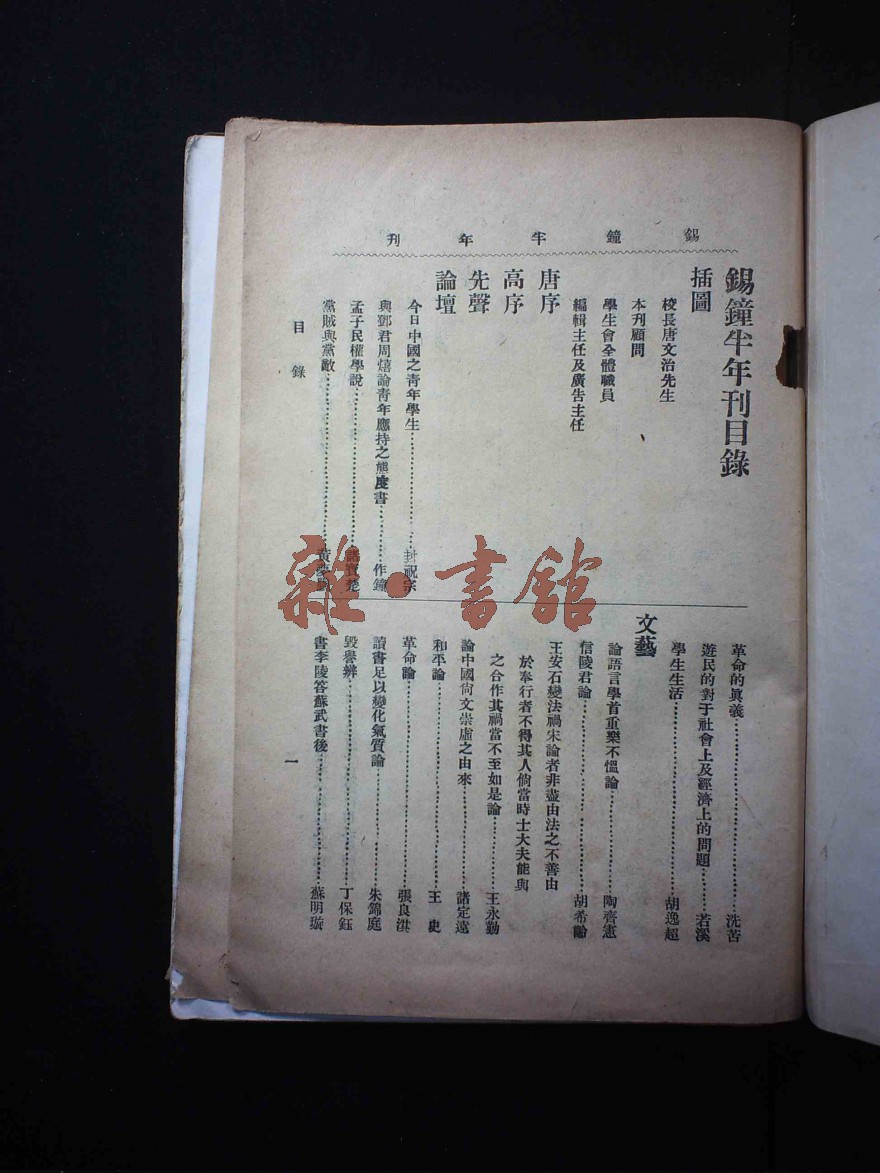 錫鐘半年刊
錫鐘半年刊目錄
插圖
校長唐文治先生
本刊顧問
學生會全體職員
編輯主任及廣告主任
唐序
高序
先聲
論壇
今日中國之青年學生……封祝宗
與鄧君周熺論青年應持之態度書……作鐘
孟子民權學說……寶楚
黨賊與黨敵……黃
革命的眞義……冼苦
遊民的對于社會上及經濟上的問題……若溪
學生生活……胡逸超
文藝
論語言學首重樂不慍論……陶齊憲
信陵君論……胡希齡
王安石變法禍宋論者非盡由法之不善由
於奉行者不得其人倘當時士大夫能與
之合作其禍當不至如是論……王永勤
論中國尙文崇虛之由來……諸定遠
和平論……王史
革命論……張良淇
讀書足以變化氣質論……朱錦庭
毀譽辨……丁保鈺
書李陵答蘇武書後……蘇明璇
目錄
一
雜·書館